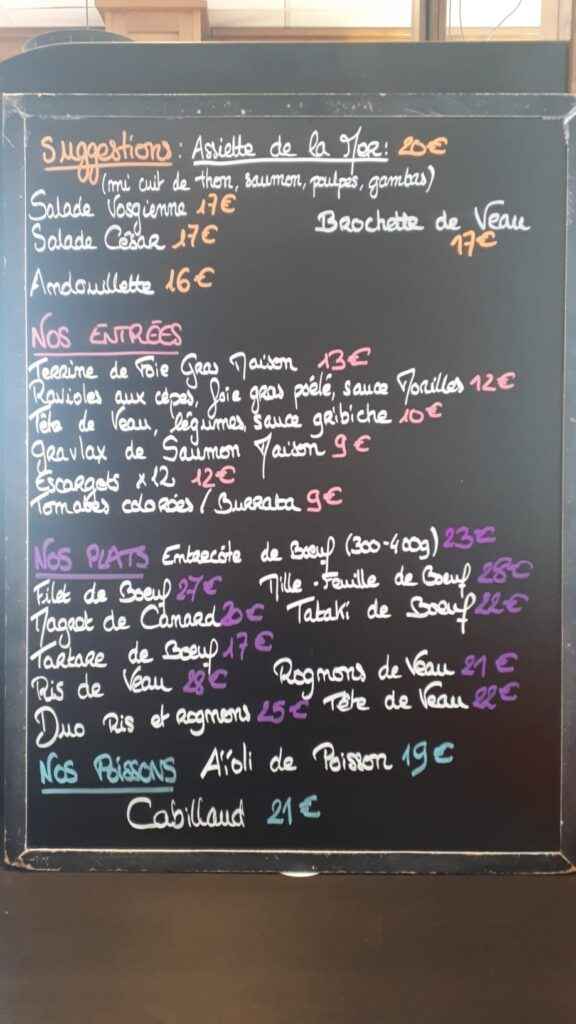 Suggestions : Assiette de la Mer : 20€
(mi cuit de thon, saumon, poulpes, gambas)
Salade Vosgienne 17€
Salade César 17€
Brochette de Veau 17€
Andouillette 16€
NOS ENTRÉES
Terrine de Foie Gras Maison 13€
Ravioles aux cèpes, foie gras poêlé, sauce Morilles 12€
Tête de Veau, légumes, sauce gribiche 10€
Gravlax de Saumon Maison 9€
Escargots x12 12€
Tomates colorées / Burrata 9€
NOS PLATS Entrecôte de Boeuf (300-400g) 23€
Filet de Boeuf 27€ Mille-Feuille de Boeuf 28€
Magret de Canard 20€ Tataki de Boeuf 22€
Tartare de Boeuf 17€
Ris de Veau 28€ Rognons de Veau 21€
Duo Ris et Rognons 25€ Tête de Veau 22€
NOS POISSONS Aïoli de Poisson 19€
Cabillaud 21€